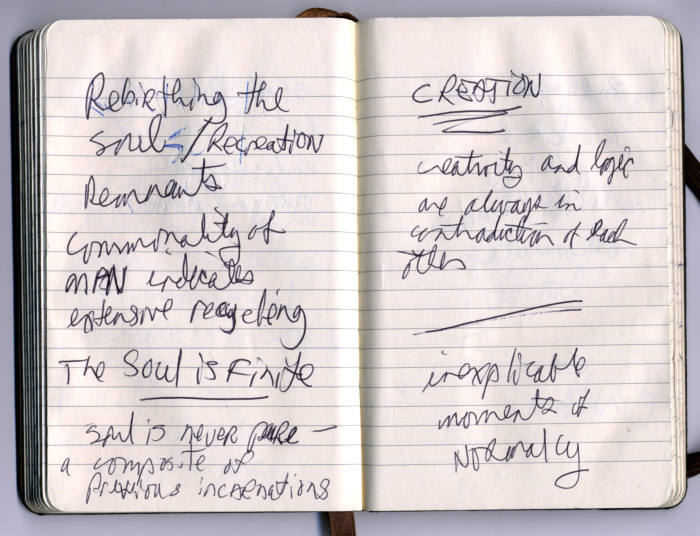 Rebirthing the
soul /Recreation
Remnants
commonality of
MAN indicates
extensive recycling
The Soul is Finite
soul is never pure —
a composite of
previous incarnations
CREATION
creativity and logic
are always in
contradiction of each
other
inexplicable
moments of
NORMALCY